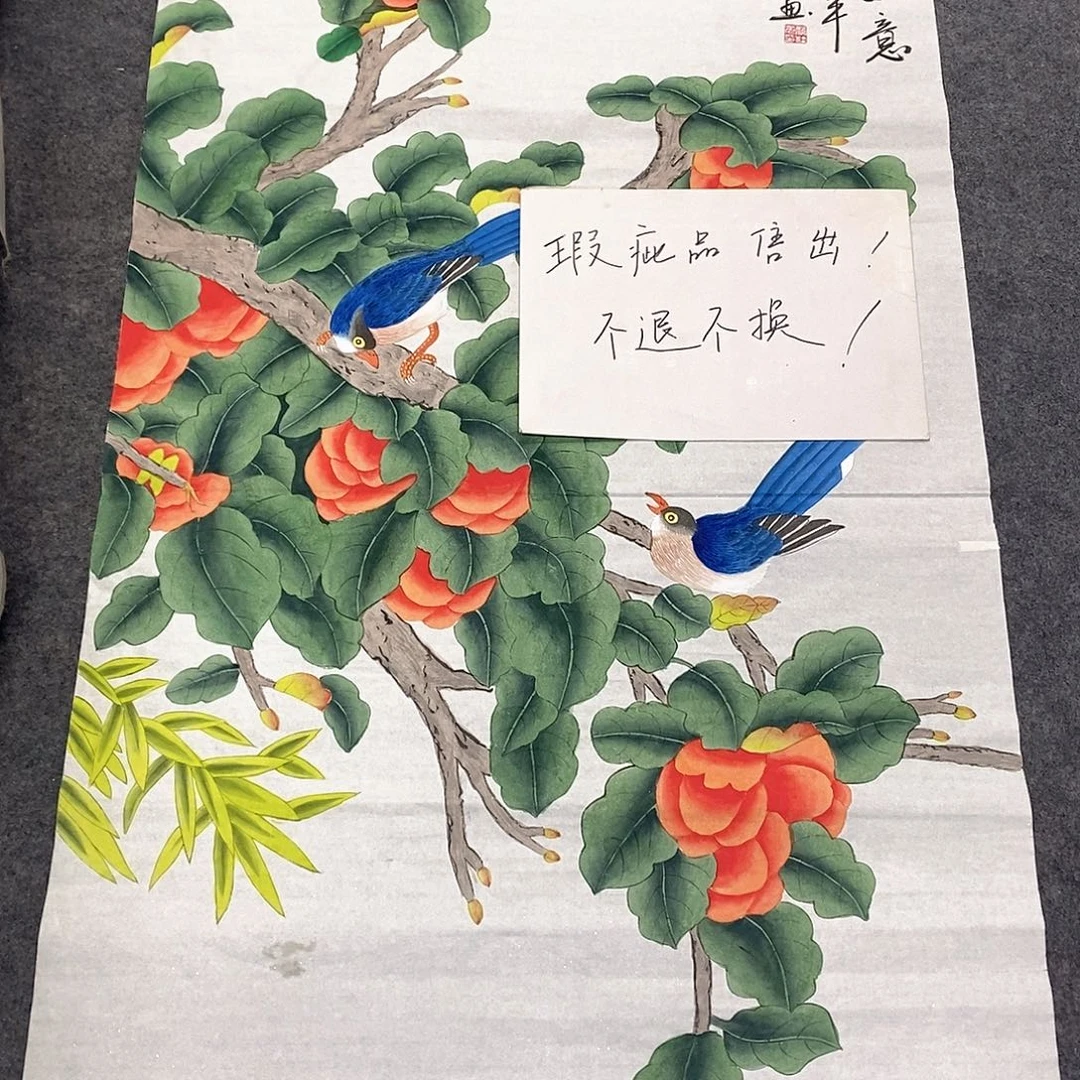 意
年
画.
瑕疵品售出！
不退不换！